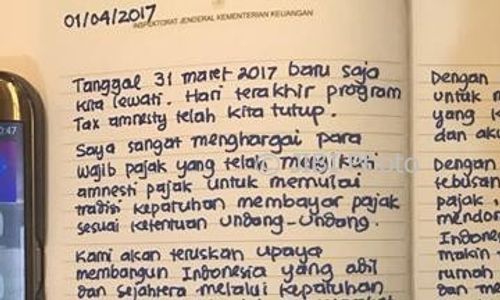 01/04/2017
INSPEKTORAT JENDERAL KEMENTERIAN KEUANGAN
Tanggal 31 maret 2017 baru saja
kita lewati. Hari terakhir program
Tax amnesty telah kita tutup.
Saya sangat menghargai para
wajib pajak yang telah mengikuti
amnesti pajak untuk memulai
tradisi kepatuhan membayar pajak
sesuai ketentuan undang-undang.
Kami akan teruskan upaya
membangun Indonesia yang adil
dan sejahtera melalui kepatuhan
Dengan
untuk
yang
dan
Dengan
tebusan
pajak,
Indone
makin
rumah
dan